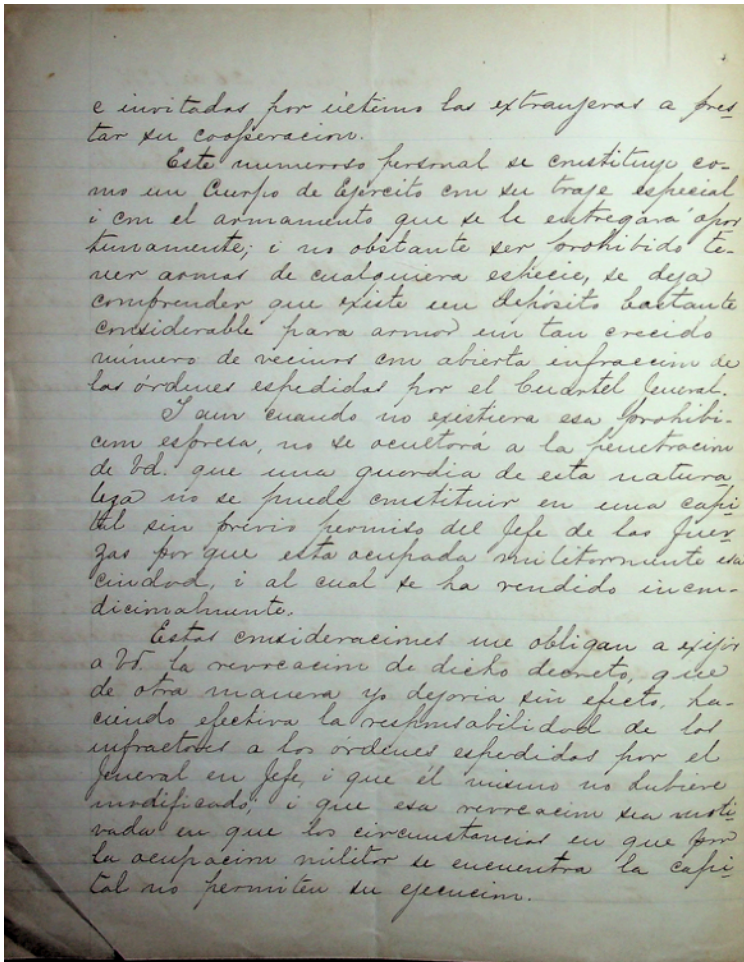 e invitados por último los extranjeros a pres-
tar su cooperacion.
Este numeroso personal se constituye co-
mo un Cuerpo de Ejército con su traje especial
i con el armamento que se le entregará opor
tunamente; i no obstante ser prohibido te-
ner armas de cualquiera especie, se deja
comprender que existe un depósito bastante
considerable para armar un tan crecido
número de vecinos con abierta infraccion de
las órdenes espedidas por el Cuartel Jeneral.
I aun cuando no existiera esa prohibi-
cion espresa, no se ocultará a la penetracion
de Vd. que una guardia de esta natura
leza no se puede constituir en una capi-
tal sin prévio permiso del Jefe de las fuer-
zas por que está ocupada militarmente esa
ciudad, i al cual se ha rendido incon-
dicionalmente.
Estas consideraciones me obligan a exijir
a Vd. la revocacion de dicho decreto, que
de otra manera yo dejaria sin efecto, ha-
ciendo efectiva la responsabilidad de los
infractores a las órdenes espedidas por el
Jeneral en Jefe, i que él mismo no hubiere
modificado; i que esa revocacion sea moti-
vada en que las circunstancias en que por
la ocupacion militar se encuentra la capi-
tal no permiten su ejecucion.